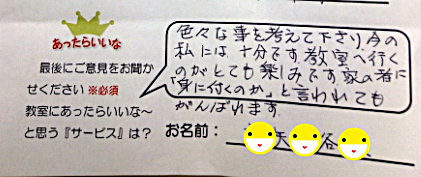 あったらいいな
最後にご意見をお聞か
せください ※必須
教室にあったらいいな～
と思う『サービス』は？
色々な事を考えて下さり、今の
私には十分です。教室へ行く
のがとても楽しみです。家の者に
「身に付くのか」と言われても
がんばれます。
お名前：